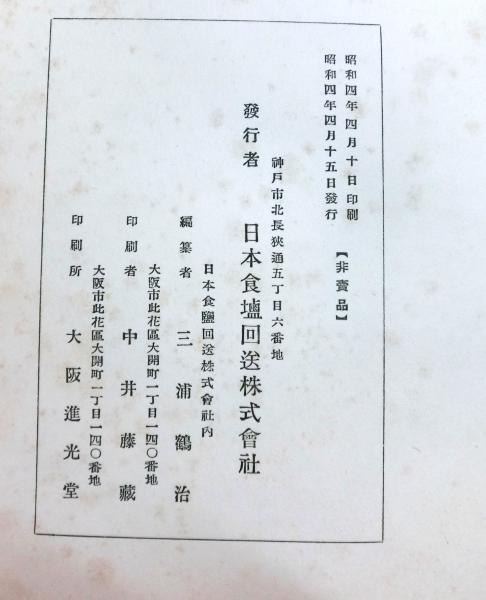 昭和四年四月十日印刷
昭和四年四月十五日發行
【非賣品】
神戸市北長狹通五丁目六番地
發行者 日本食塩回送株式會社
日本食鹽回送株式會社内
編纂者 三浦鶴治
大阪市此花區大開町一丁目一四〇番地
印刷者 中井藤藏
大阪市此花區大開町一丁目一四〇番地
印刷所 大阪進光堂